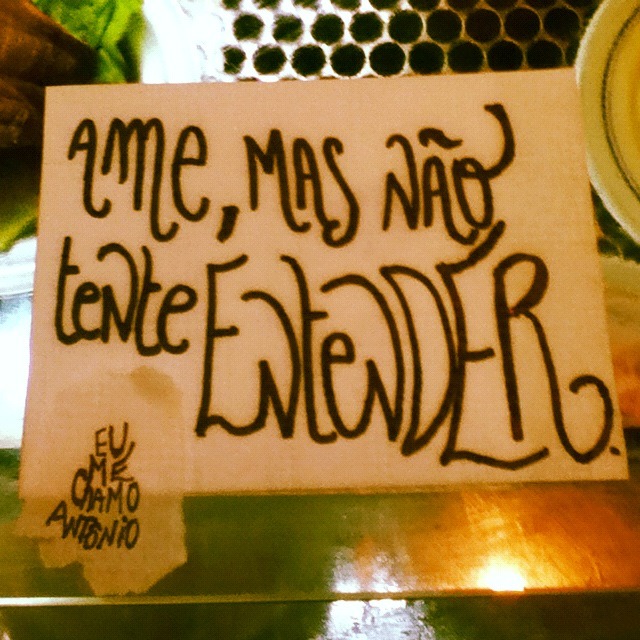 AME, MAS NÃO
tente ENTENDER.
EU
ME
CHAMO
ANTÔNIO